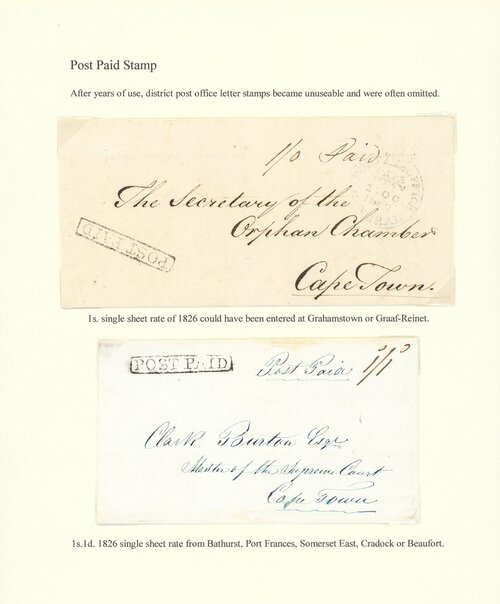 Post Paid Stamp
After years of use, district post office letter stamps became unuseable and were often omitted.
1/0 Paid
The Secretary of the
Orphan Chamber
Cape Town.
POST PAID
1s. single sheet rate of 1826 could have been entered at Grahamstown or Graaf-Reinet.
POST PAID
Post Paid 1/1
Clark Burton Esqr
Master of the Supreme Court
Cape Town
1s.1d. 1826 single sheet rate from Bathurst, Port Frances, Somerset East, Cradock or Beaufort.